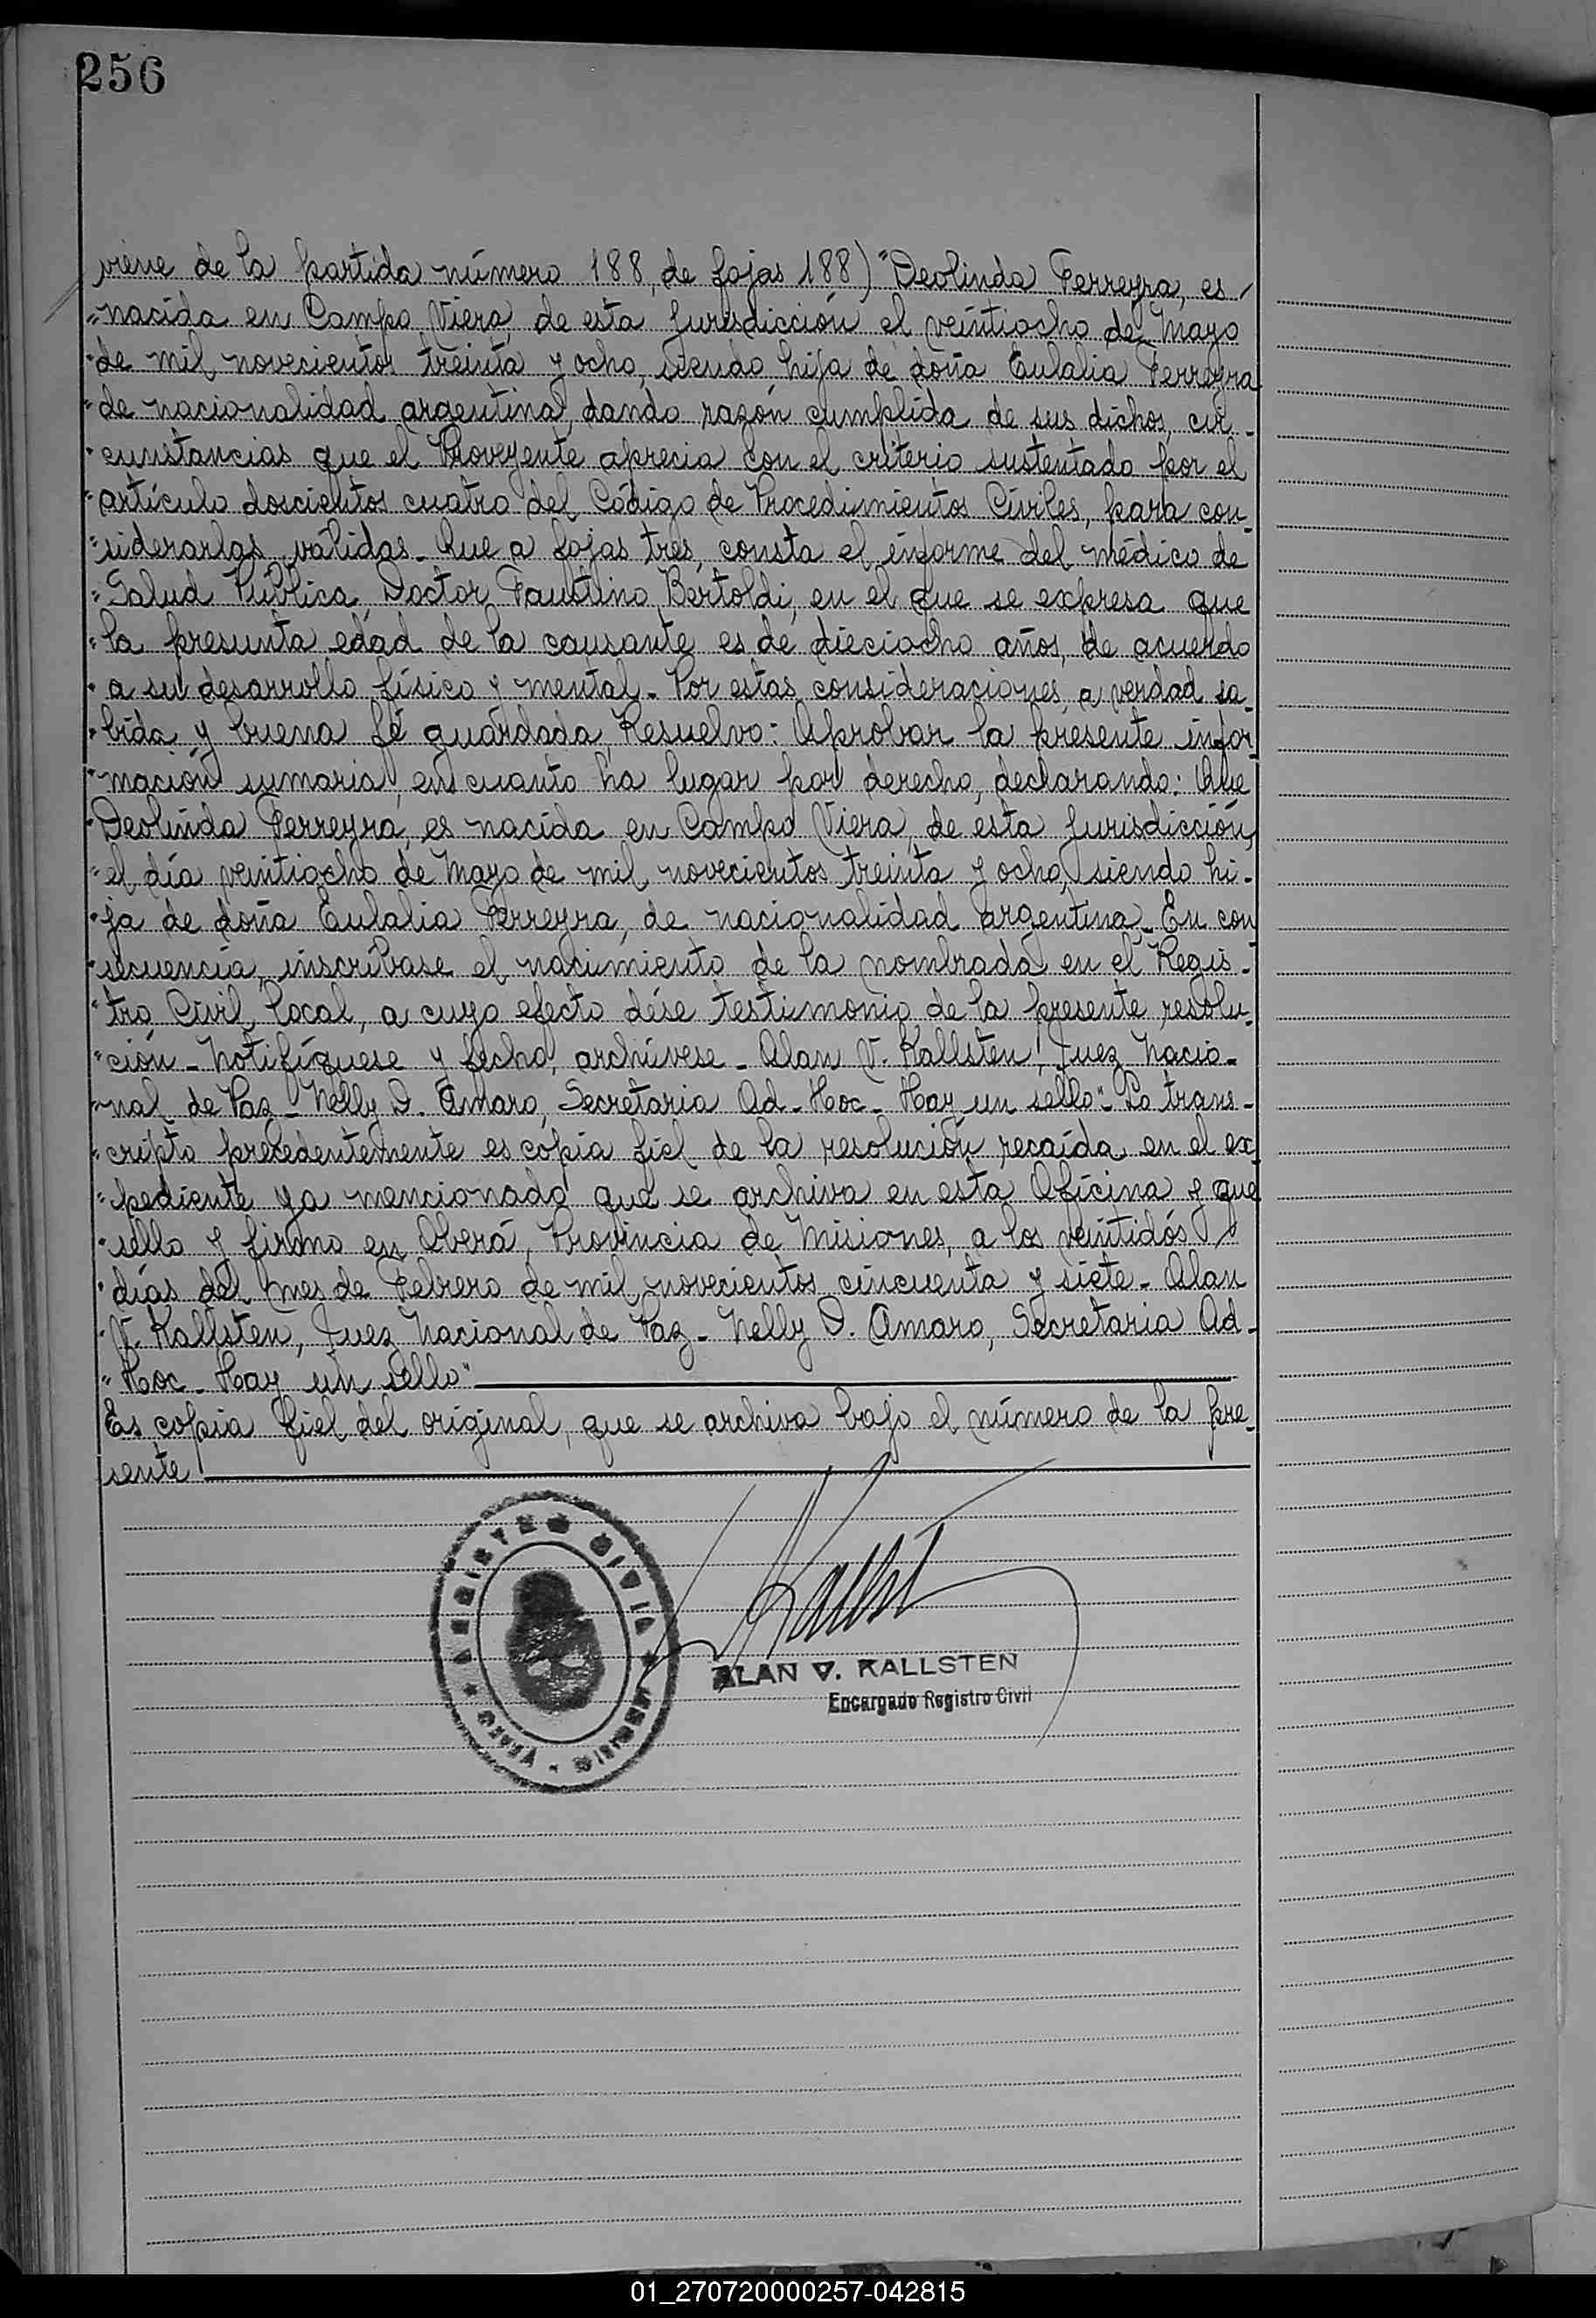 256
viene de la partida número 188, de fojas 188) "Deolinda Ferreyra, es
"nacida en Campo Viera, de esta Jurisdicción el veintiocho de Mayo
"de mil novecientos treinta y ocho, siendo hija de doña Eulalia Ferreyra
"de nacionalidad argentina, dando razón cumplida de sus dichos, cir-
"cunstancias que el Proveyente aprecia con el criterio sustentado por el
"artículo doscientos cuatro del Código de Procedimientos Civiles, para con-
"siderarlas válidas. Que a fojas tres, consta el informe del médico de
"Salud Pública, Doctor Faustino Bertoldi, en el que se expresa que
"la presunta edad de la causante es de dieciocho años, de acuerdo
"a su desarrollo físico y mental. Por estas consideraciones, a verdad sa-
"bida y buena fé guardada, Resuelvo: Aprobar la presente infor-
"mación sumaria, en cuanto ha lugar por derecho, declarando: Que
"Deolinda Ferreyra, es nacida en Campo Viera, de esta Jurisdicción,
"el día veintiocho de Mayo de mil novecientos treinta y ocho, siendo hi-
"ja de doña Eulalia Ferreyra, de nacionalidad argentina. En con
"secuencia, inscríbase el nacimiento de la nombrada en el Regis-
"tro Civil Local, a cuyo efecto dése testimonio de la presente resolu-
"ción - Notifíquese y fecho, archívese - Alan V. Kallsten, Juez Nacio-
"nal de Paz - Nelly D. Amaro, Secretaria Ad-Hoc - Hay un sello" - Lo trans-
"cripto precedentemente es cópia fiel de la resolución recaída en el ex-
"pediente ya mencionado que se archiva en esta Oficina y que
"sello y firmo en Oberá, Provincia de Misiones, a los veintidós
"días del mes de Febrero de mil novecientos cincuenta y siete - Alan
"V. Kallsten, Juez Nacional de Paz - Nelly D. Amaro, Secretaria Ad-
"Hoc - Hay un sello"
Es copia fiel del original, que se archiva bajo el número de la pre-
sente
REGISTRO CIVIL
OBERA - MISIONES
ALAN V. KALLSTEN
Encargado Registro Civil
01_270720000257-042815